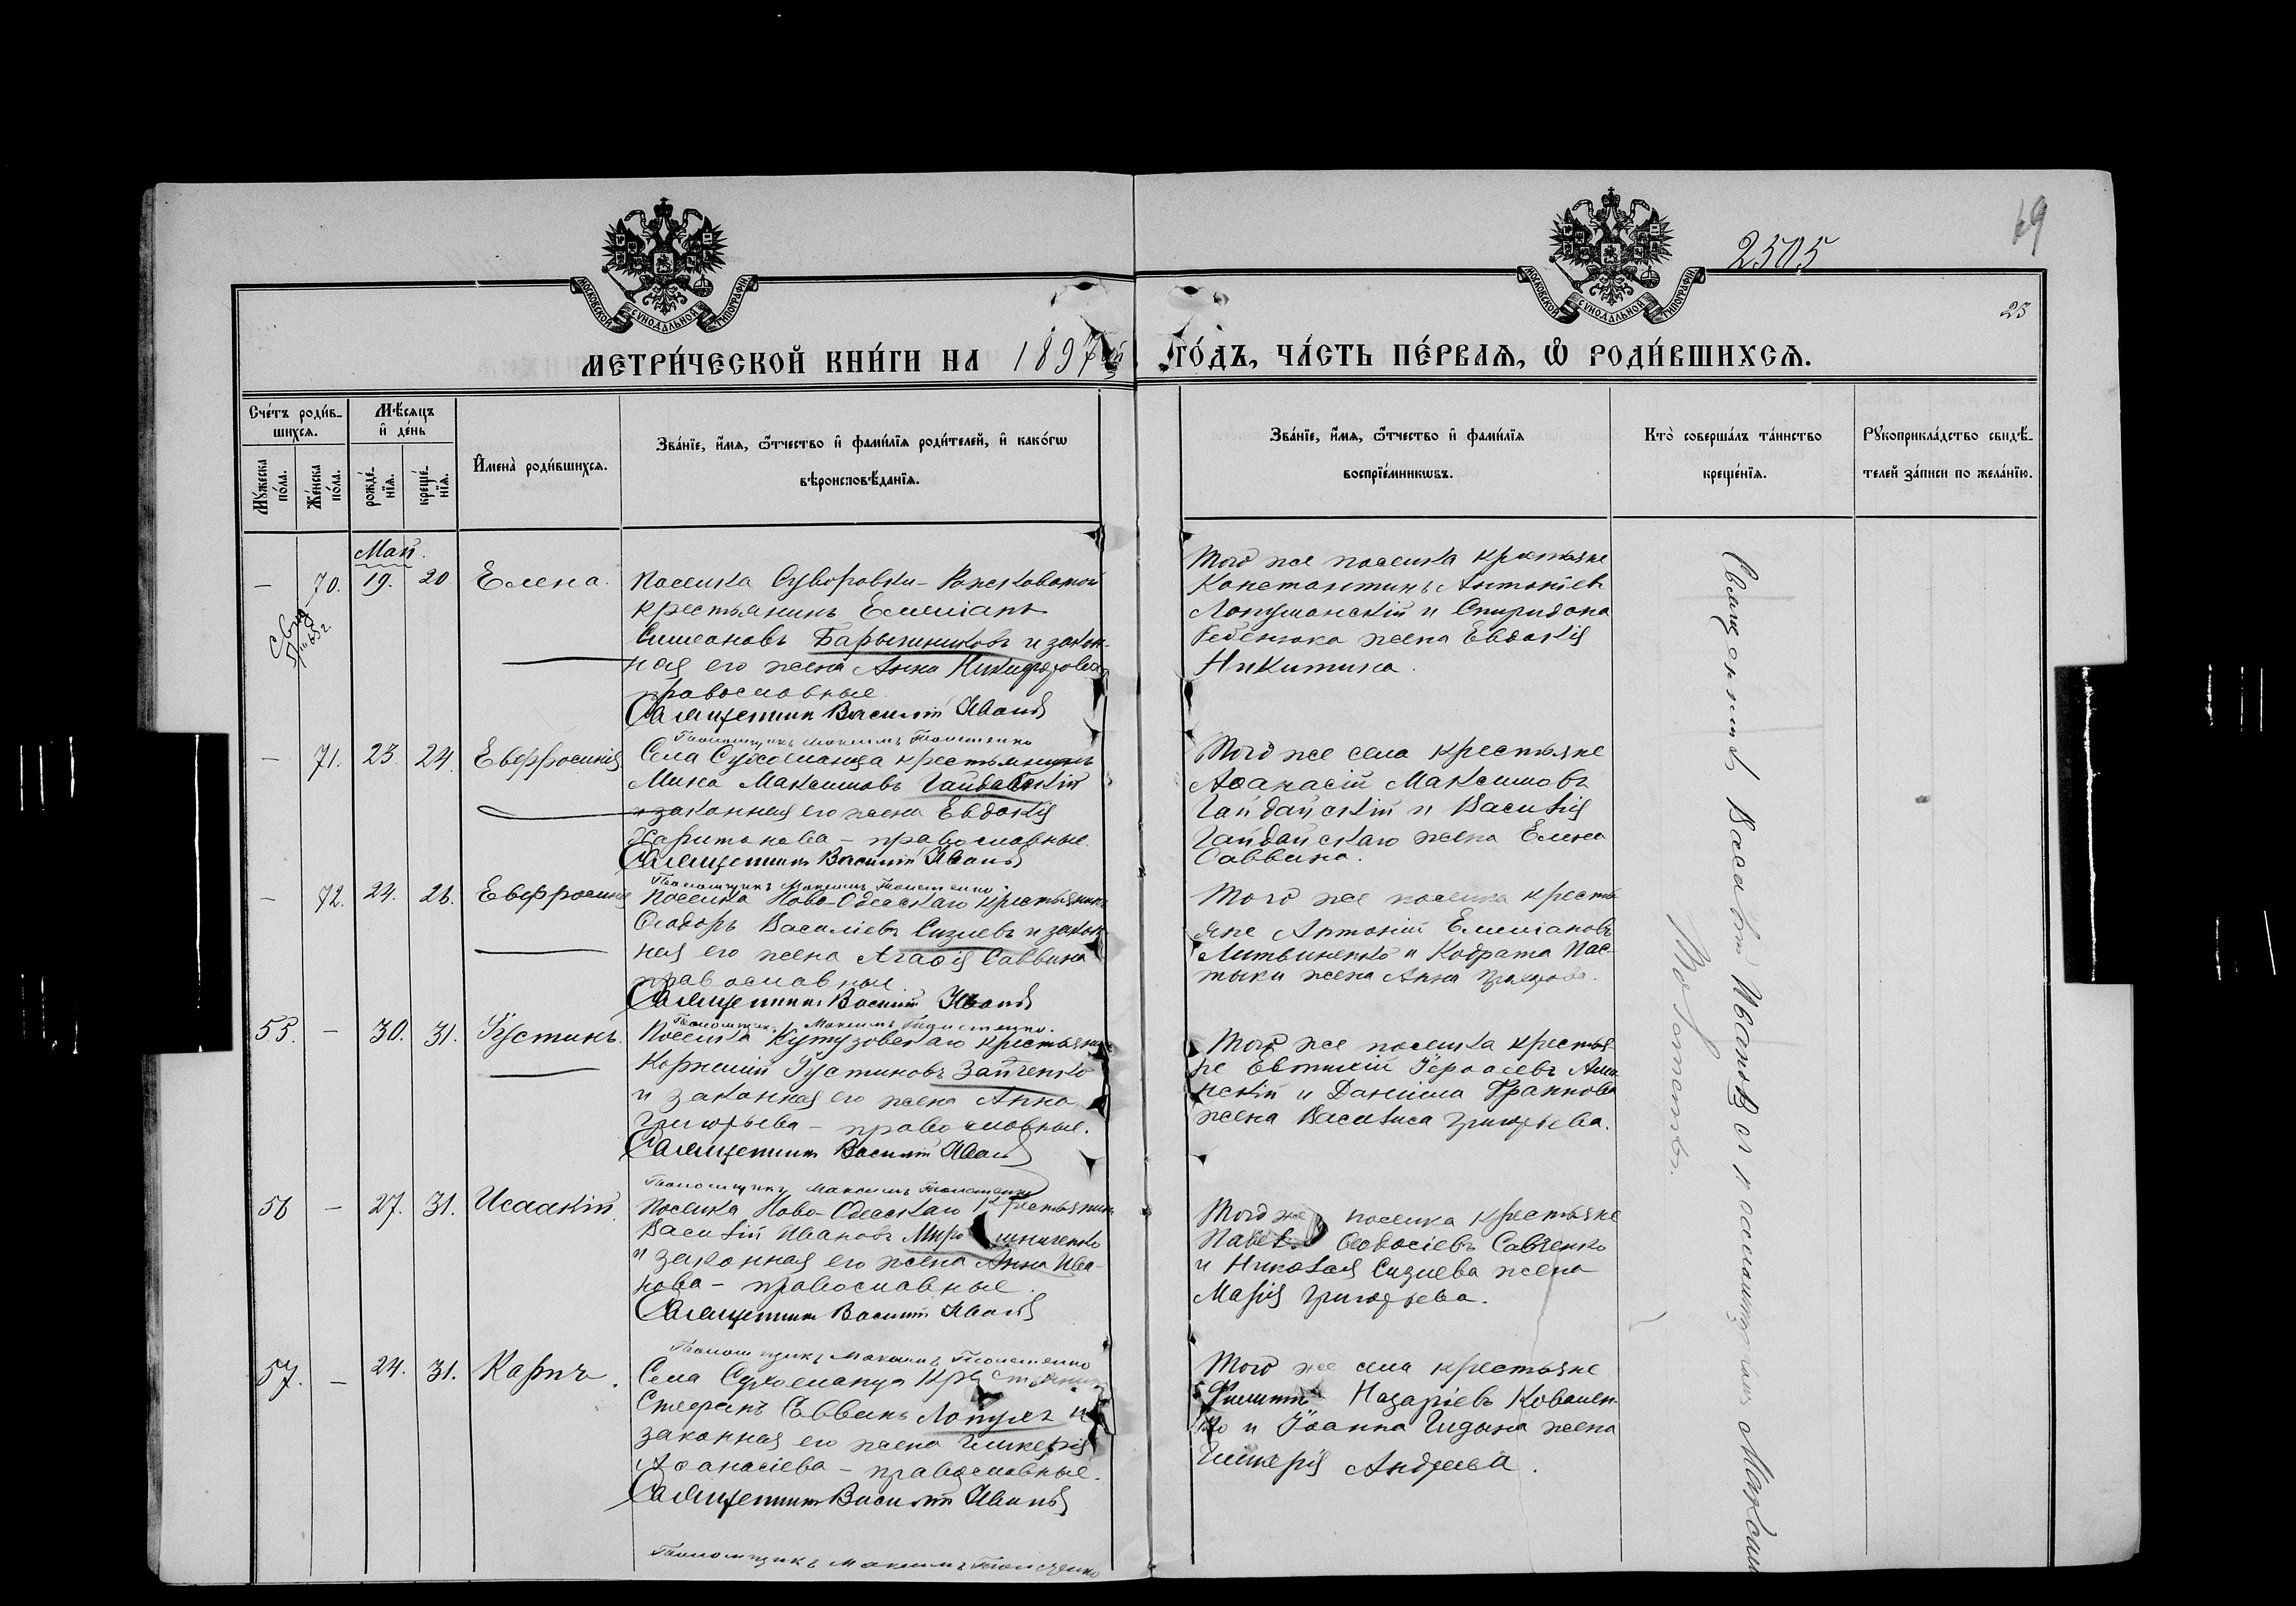 2505
69
23
МОСКОВСКОЙ СУНОДАЛЬНОЙ ТИПОГРАФІИ
МОСКОВСКОЙ СУНОДАЛЬНОЙ ТИПОГРАФІИ
МЕТРИ́ЧЕСКОЙ КНИ́ГИ НА 1897 ГО́ДЪ, ЧА́СТЬ ПЕ́РВАѦ, Ѽ РОДИ́ВШИХСѦ.
Сче́тъ роди́в-
шихсѧ.
Мꙋ́жеска по́ла.
Же́нска по́ла.
Мѣ́сѧцъ
и҆ де́нь
рожде́-
нїѧ.
креще́-
нїѧ.
И҆мена̀ роди́вшихсѧ.
Зва́нїе, и҆́мѧ, ѻ҆́тчество и҆ фами́лїѧ роди́телей, и҆ како́гѡ
вѣроисповѣ́данїѧ.
Зва́нїе, и҆́мѧ, ѻ҆́тчество и҆ фами́лїѧ
воспрїе́мникѡвъ.
Кто̀ соверша́лъ та́инство
креще́нїѧ.
Рꙋкоприкла́дство свидѣ́-
телей за́писи по жела́нїю.
Май.
— 70. 19. 20 Елена.
Поселка Суворовки-
крестьянинъ Емеліанъ
Симеоновъ Барышниковъ и закон-
ная его жена Анна Никифорова
православные.
Священникъ Василій Ивановъ
Псаломщикъ Максимъ
Того же поселка крестьяне
Константинъ Антоніевъ
Лопушанскій и Спиридона
жена Евдокія
Никитина.
— 71. 23. 24. Евфросинія
Села Сухоеланца крестьянинъ
Мина Максимовъ Гайдайскій
и законная его жена Евдокія
Харитонова — православные.
Священникъ Василій Ивановъ
Псаломщикъ Максимъ
Того же села крестьяне
Аѳанасій Максимовъ
Гайдайскій и Василія
Гайдайскаго жена Елена
Саввина.
— 72. 24. 26. Евфросинія
Поселка Ново-Одесскаго крестьянинъ
Ѳеодоръ Василіевъ Сизиевъ и закон-
ная его жена Агаѳія Саввина
православные.
Священникъ Василій Ивановъ
Псаломщикъ Максимъ
Того же поселка кресть-
яне Антоній Емеліановъ
Литвиненко и Кодрата Пас-
тыки жена Анна
55. — 30. 31. Іустинъ.
Поселка Кутузовскаго крестьянинъ
Корнилій Іустиновъ Зайченко
и законная его жена Анна
Григорьева — православные.
Священникъ Василій Ивановъ
Псаломщикъ Максимъ
Того же поселка крестья-
не Евтихій
и Даніила
жена Василиса Григорьева.
56 — 27. 31. Исаакій.
Поселка Ново-Одесскаго крестьянинъ
Василій Ивановъ Мирошниченко
и законная его жена Анна Ива-
нова — православные.
Священникъ Василій Ивановъ
Псаломщикъ Максимъ
Того же поселка крестьяне
Павелъ Ѳеодосіевъ Савченко
и Николая Сизиева жена
Марія Григорьева.
57. — 24. 31. Карпъ.
Села Сухоеланца крестьянинъ
Стефанъ Саввинъ Лопуля и
законная его жена Гликерія
Аѳанасіева — православные.
Священникъ Василій Ивановъ
Псаломщикъ Максимъ
Того же села крестьяне
Филиппъ Назаріевъ Ковален-
ко и Іоанна жена
Гликерія Андреева.
Священникъ Василій Ивановъ съ псаломщикомъ Максим